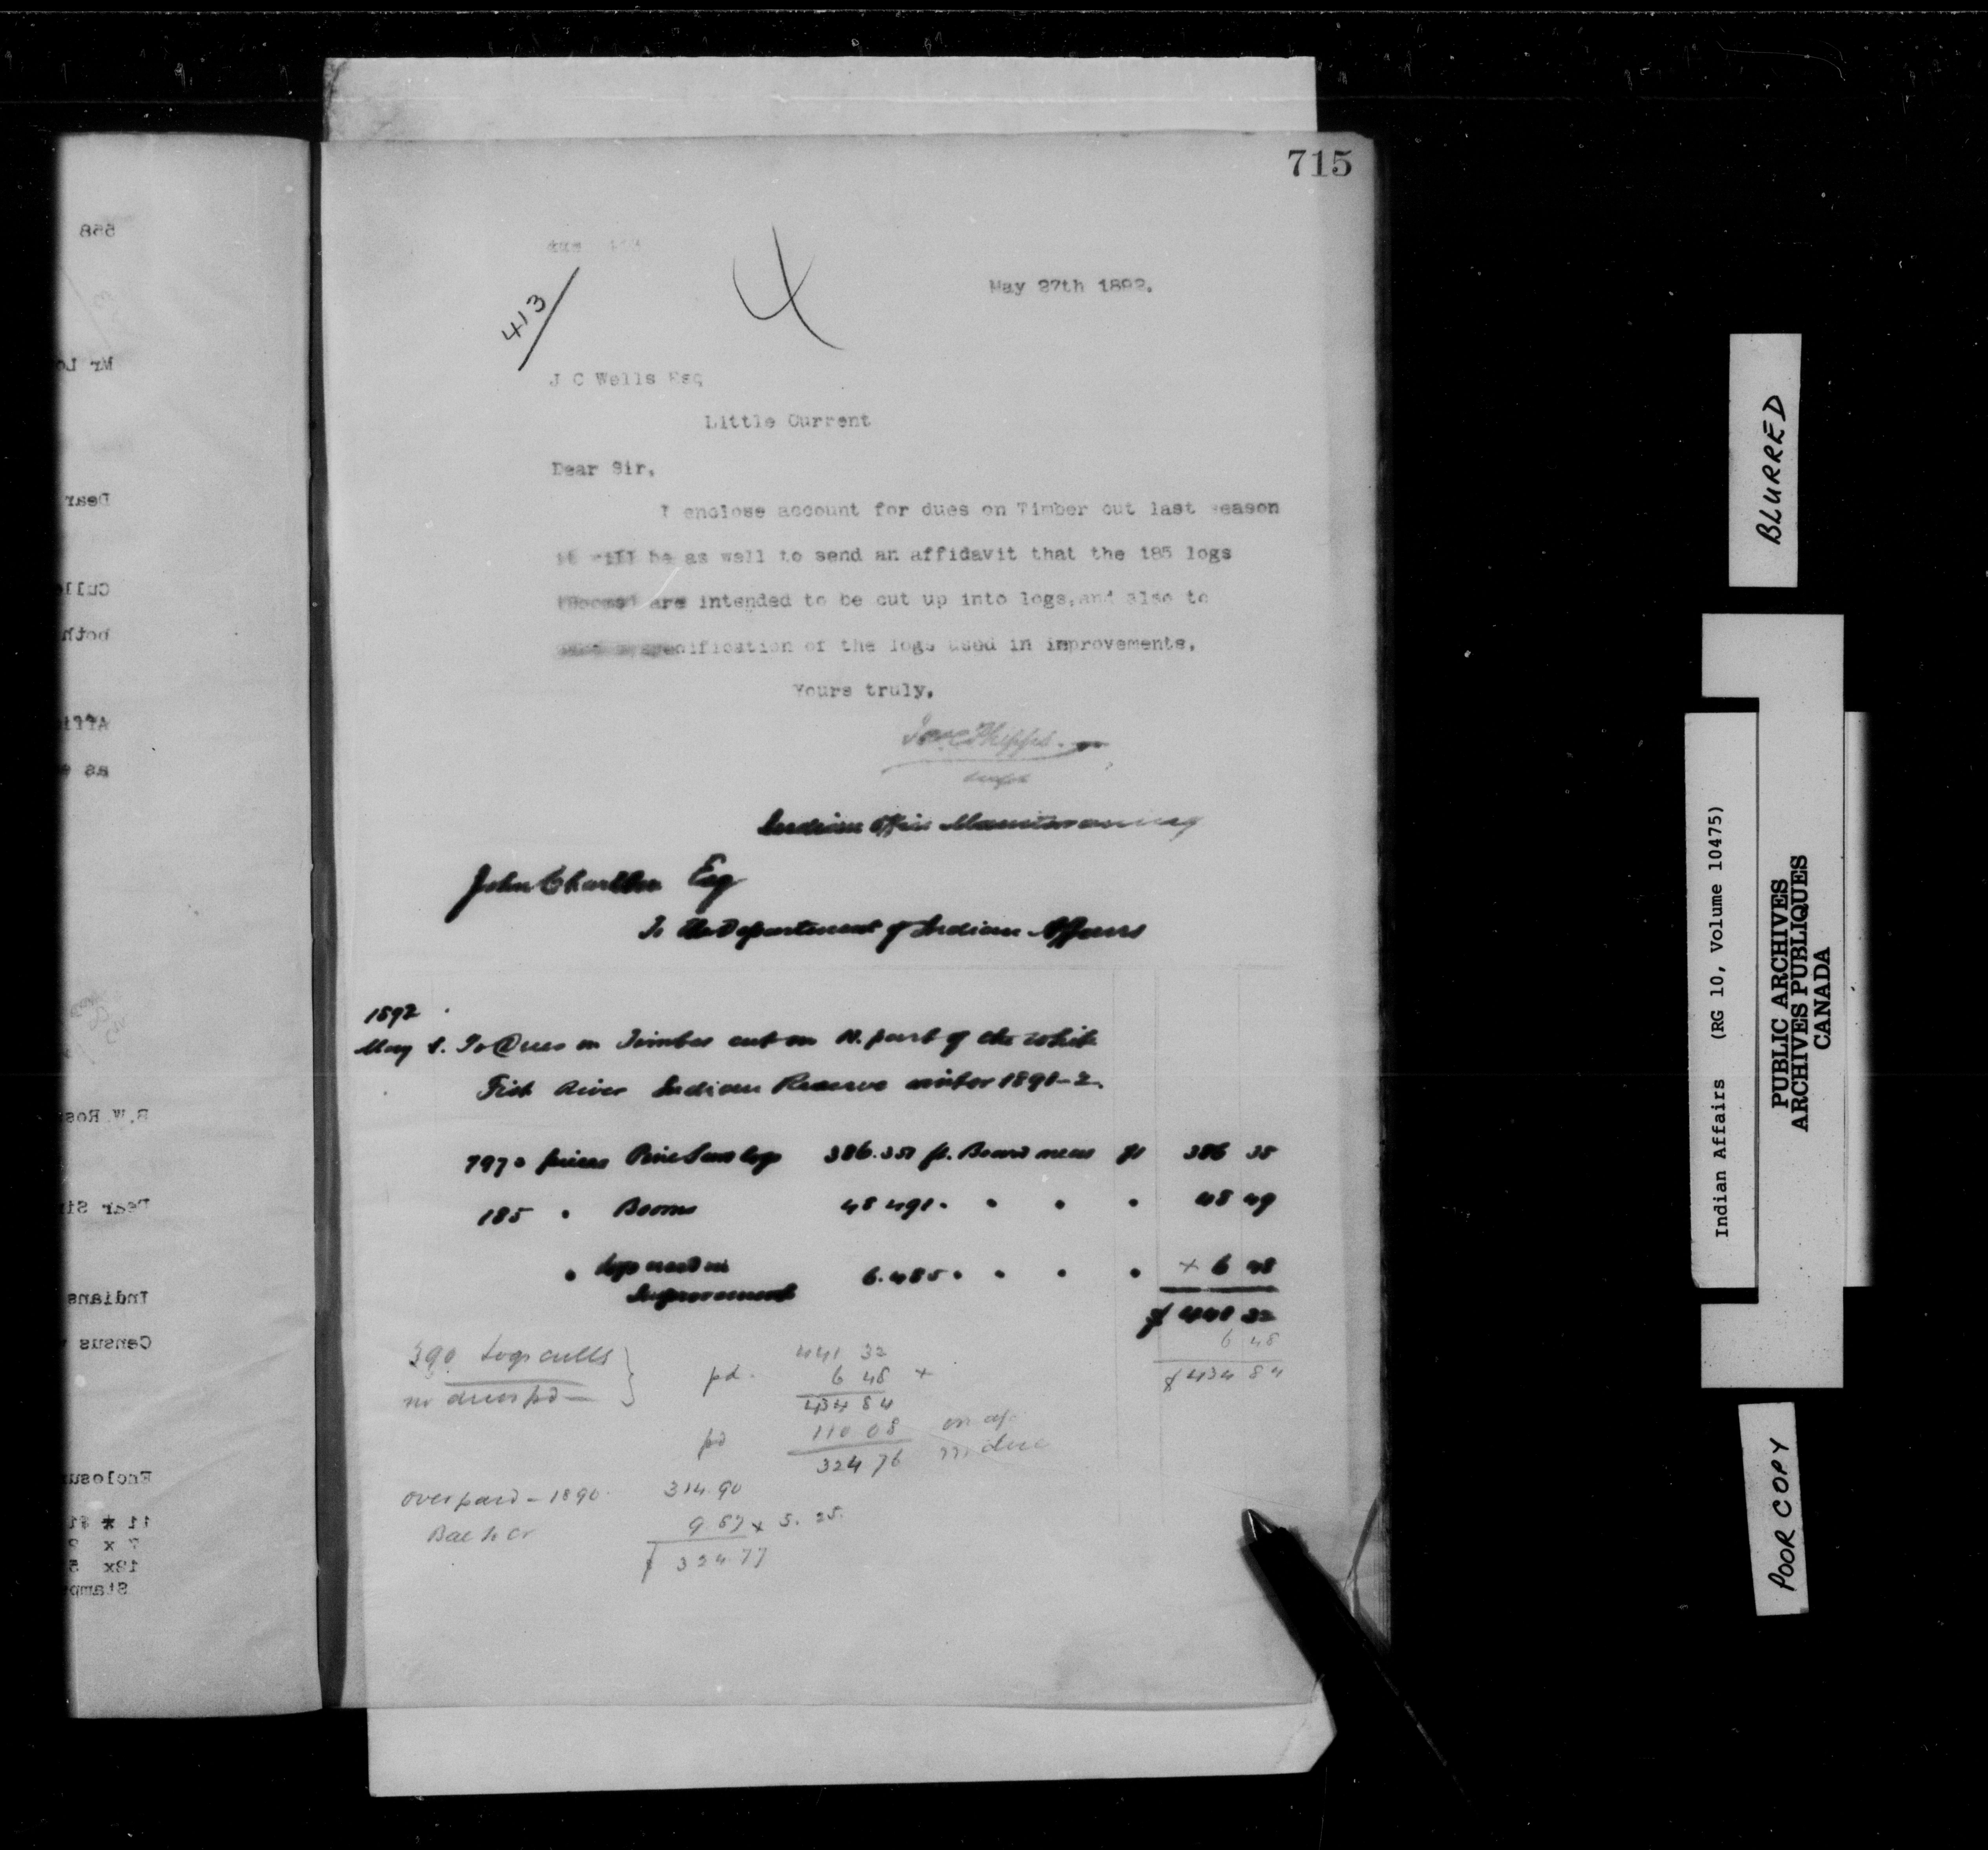 715
413
4
May 27th 1892.
J C Wells Esq
Little Current
Dear Sir,
I enclose account for dues on Timber cut last season
it will be as well to send an affidavit that the 185 logs
are intended to be cut up into logs, and also to
specification of the logs used in improvements.
Yours truly,
Jas C Phipps
Supt
Indian Office Manitowaning
John Charlton Esq
To the Department of Indian Affairs
1892
May 1. To Dues on Timber cut on N. part of the White
Fish River Indian Reserve winter 1891-2.
7970 pieces Pine Saw logs 386.351 ft. Board meas $1 386 35
185 " Booms 48 491 " " " " 48 49
" logs used in
Improvement 6.485 " " " " + 6 48
$ 441 32
6 48
$ 434 84
390 Logs culls
no dues pd
pd. 441 32
6 48 +
434 84
pd 110 08
324 76
due
over paid - 1890. 314.90
Bal to Cr 9.87 + 5.25.
$ 324.77
558
Mr Lo
Dear
Culle
both
Affi
as
B.W.Ros
Dear Si
Indians
Census
Enclosu
11 * $1
7 x
12x 5
Stamp
BLURRED
Indian Affairs (RG 10, Volume 10475)
PUBLIC ARCHIVES
ARCHIVES PUBLIQUES
CANADA
POOR COPY